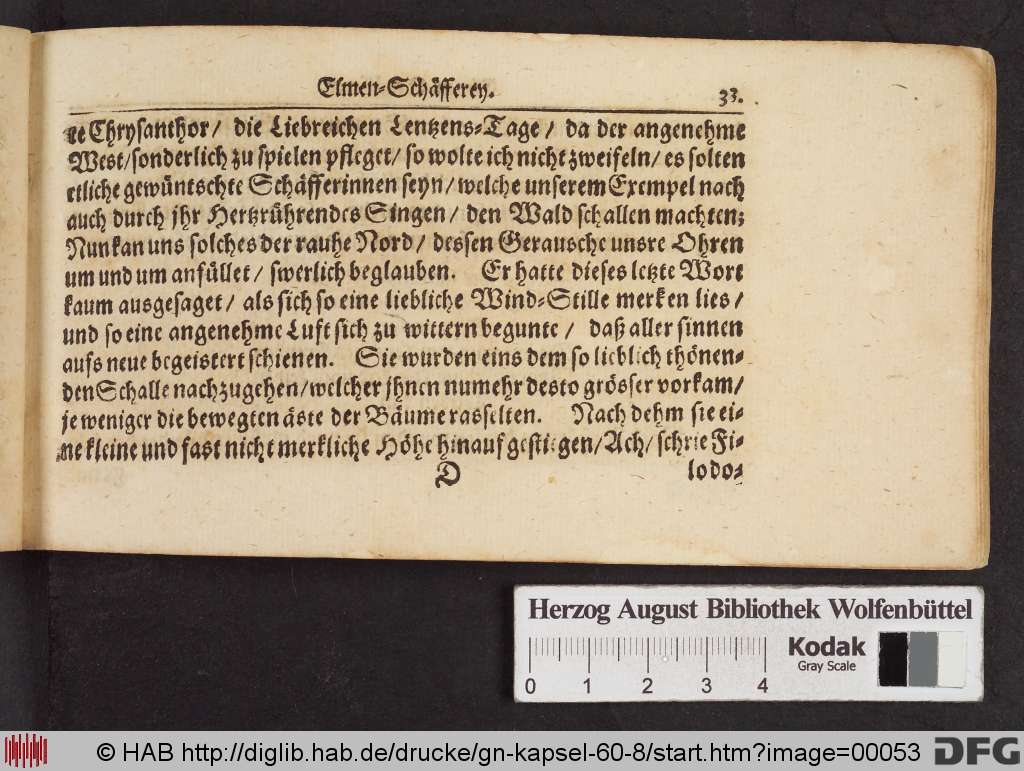 Elmen-Schäfferey. 33.
te Chrysanthor/ die Liebreichen Lentzens-Tage/ da der angenehme
West/sonderlich zu spielen pfleget/ so wolte ich nicht zweifeln/ es solten
etliche gewüntschte Schäfferinnen seyn/ welche unserem Exempel nach
auch durch jhr Hertzrührendes Singen/ den Wald schallen machten;
Nun kan uns solches der rauhe Nord/ dessen Gerausche unsre Ohren
um und um anfüllet/ swerlich beglauben. Er hatte dieses letzte Wort
kaum ausgesaget/ als sich so eine liebliche Wind-Stille merken lies/
und so eine angenehme Luft sich zu wittern begunte/ daß aller sinnen
aufs neue begeistert schienen. Sie wurden eins dem so lieblich thönen-
den Schalle nachzugehen/welcher jhnen numehr desto grösser vorkam/
je weniger die bewegten äste der Bäume rasselten. Nach dehm sie ei-
ne kleine und fast nicht merkliche Höhe hinauf gestiegen/ Ach/ schrie Fi-
D lodo-
Herzog August Bibliothek Wolfenbüttel
Kodak
Gray Scale
0 1 2 3 4
© HAB http://diglib.hab.de/drucke/gn-kapsel-60-8/start.htm?image=00053
DFG